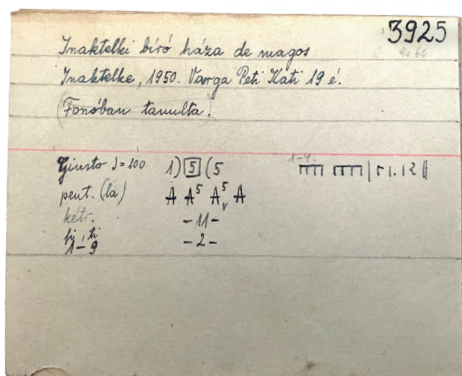 3925
Inaktelki bíró háza de magos
Inaktelke, 1950. Varga Peti Kati 19 é.
(Fonóban tanulta.)
Giusto ♩=100 1) 5 (5 1-4.
pent. (la) A A⁵ A⁵ᵥ A
kétr. -11-
1-9 -2-